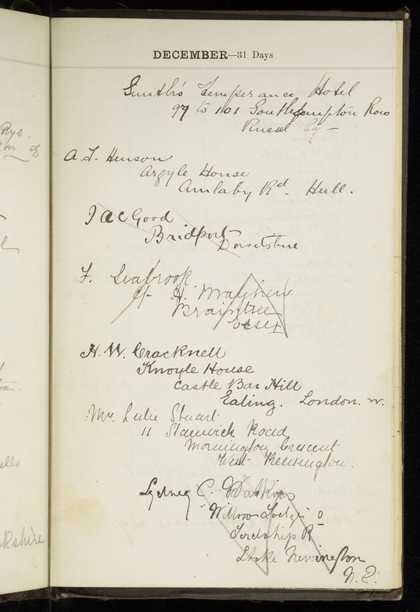 DECEMBER—31 Days
Smith's Temperance Hotel
97 to 101 Southampton Row
Russel Sq —
A. T. Henson
Argyle House
Anlaby Rd. Hull.
Good
Bridport
Dorsetshire
F. Seabrook
c/- H. Mayhew
Braintree
Essex
H. W. Cracknell
Knoyle House
Castle Bar Hill
Ealing. London. W.
Mr. Stuart
11 Stanwick Road
Mornington Crescent
West Kensington.
Sydney C. Watkins
Lodge
Lordship Rd
Stoke Newington
N.